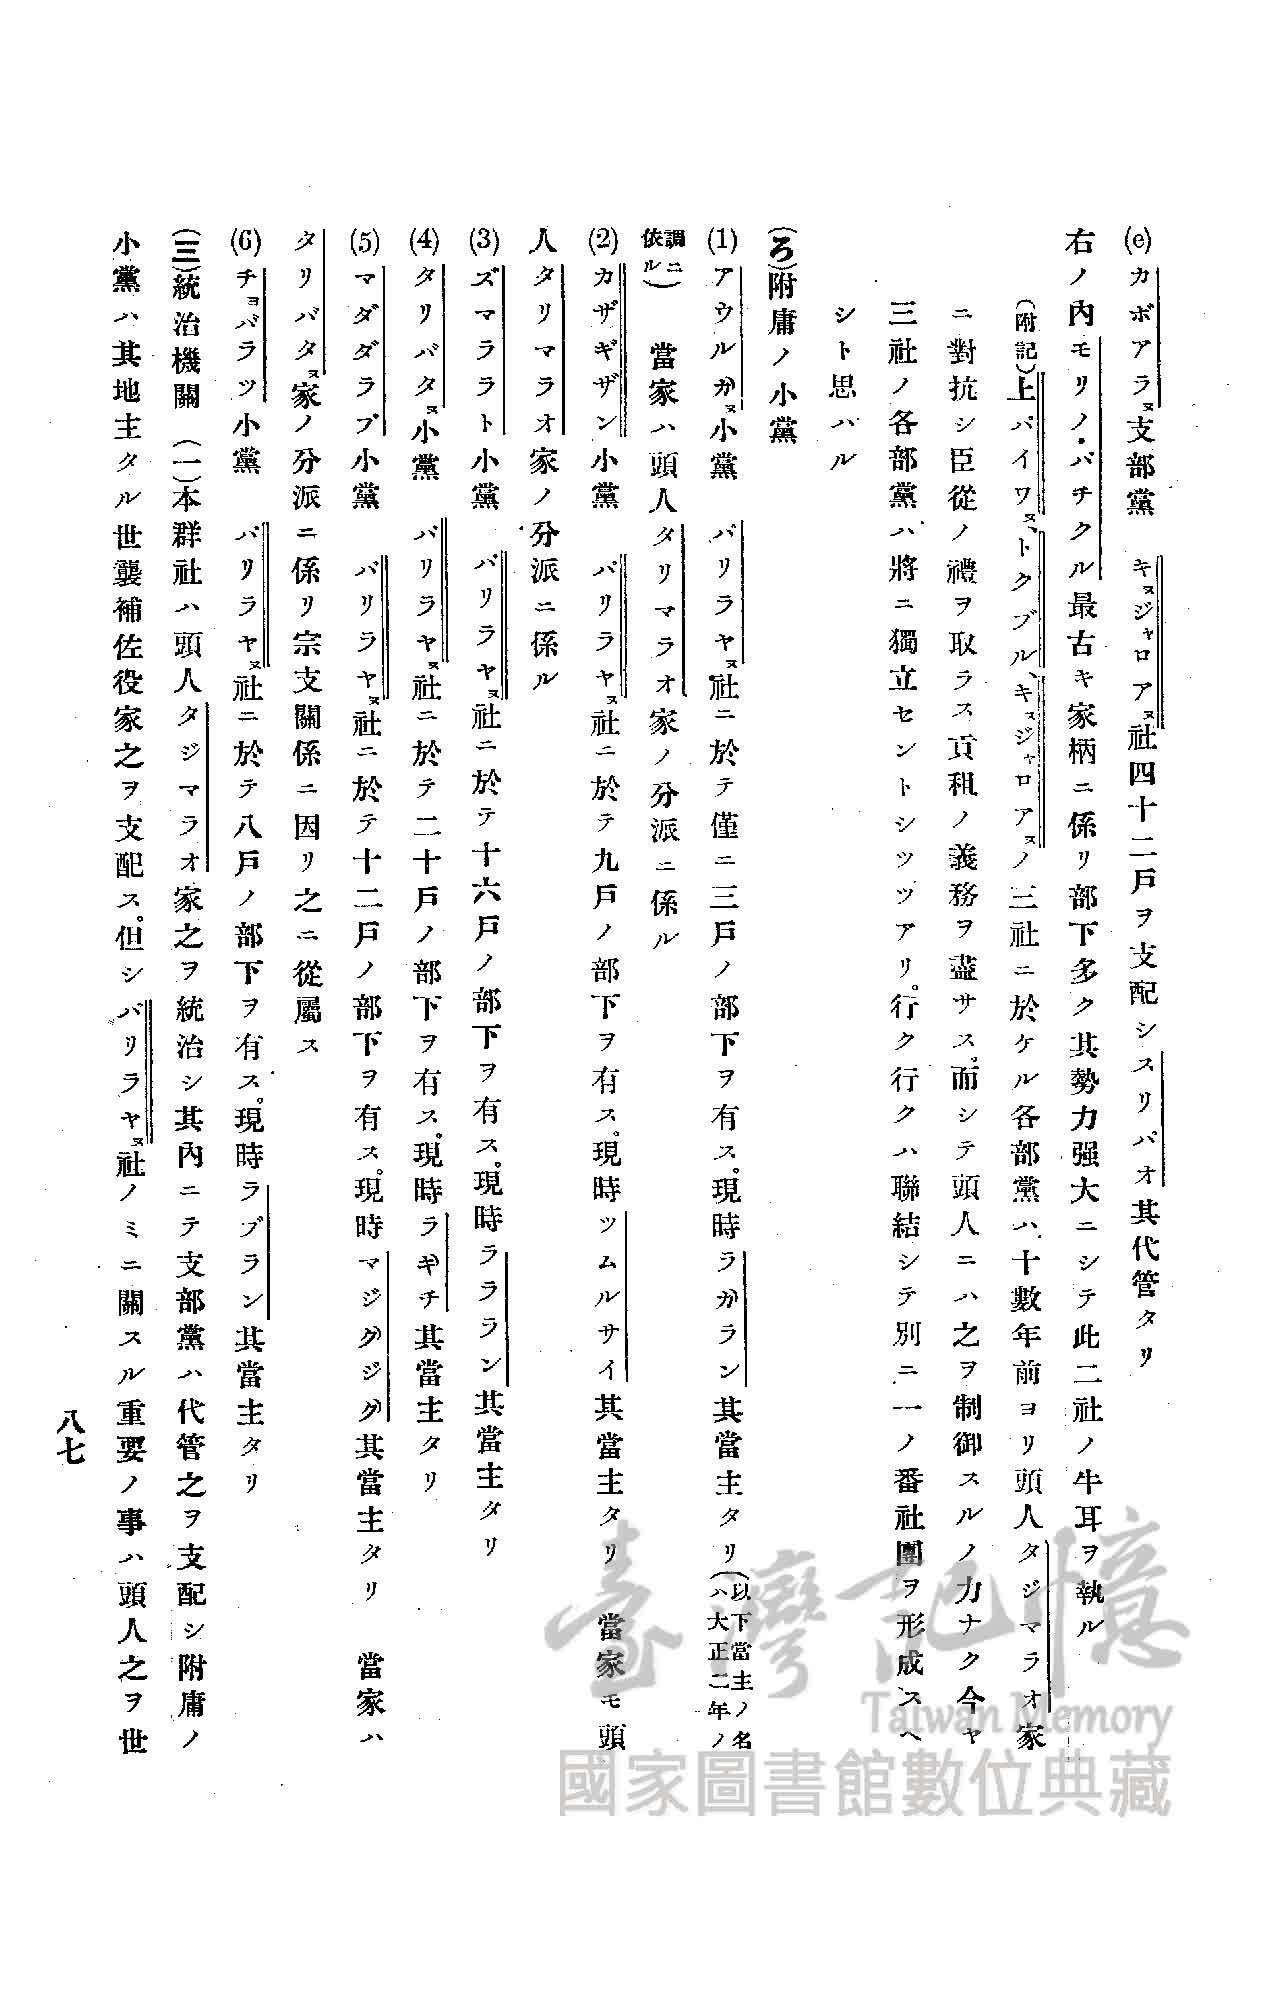 (e)カボアラㇴ支部黨　キㇴジャロアㇴ社四十二戶ヲ支配シスリパオ其代管タリ
右ノ內モリノ・バチクル最古キ家柄ニ係リ部下多ク其勢力强大ニシテ此二社ノ牛耳ヲ執ル
(附記)上パイワㇴ、トクブル、キㇴジャロアㇴノ三社ニ於ケル各部黨ハ、十數年前ヨリ頭人タジマラオ家
ニ對抗シ臣從ノ禮ヲ取ラス貢租ノ義務ヲ盡サス。而シテ頭人ニハ之ヲ制御スルノ力ナク今ヤ
三社ノ各部黨ハ將ニ獨立セントシツツアリ。行ク行クハ聯結シテ別ニ一ノ番社團ヲ形成スヘ
シト思ハル
(ろ)附庸ノ小黨
(1)アウルガㇴ小黨　パリラヤㇴ社ニ於テ僅ニ三戶ノ部下ヲ有ス。現時ラガラン其當主タリ(以下當主ノ名ハ大正二年ノ
調ニ依ル)　當家ハ頭人タリマラオ家ノ分派ニ係ル
(2)カザギザン小黨　パリラヤㇴ社ニ於テ九戶ノ部下ヲ有ス。現時ツムルサイ其當主タリ　當家モ頭
人タリマラオ家ノ分派ニ係ル
(3)ズマララト小黨　パリラヤㇴ社ニ於テ十六戶ノ部下ヲ有ス。現時ラララン其當主タリ
(4)タリバタㇴ小黨　パリラヤㇴ社ニ於テ二十戶ノ部下ヲ有ス。現時ラギチ其當主タリ
(5)マダダラブ小黨　パリラヤㇴ社ニ於テ十二戶ノ部下ヲ有ス。現時マジグジグ其當主タリ　當家ハ
タリバタㇴ家ノ分派ニ係リ宗支關係ニ因リ之ニ從屬ス
(6)チョバラツ小黨　パリラヤㇴ社ニ於テ八戶ノ部下ヲ有ス。現時ラブラン其當主タリ
(三)統治機關　(一)本群社ハ頭人タジマラオ家之ヲ統治シ其內ニテ支部黨ハ代管之ヲ支配シ附庸ノ
小黨ハ其地主タル世襲補佐役家之ヲ支配ス。但シパリラヤㇴ社ノミニ關スル重要ノ事ハ頭人之ヲ世
八七
臺灣記憶
Taiwan Memory
國家圖書館數位典藏